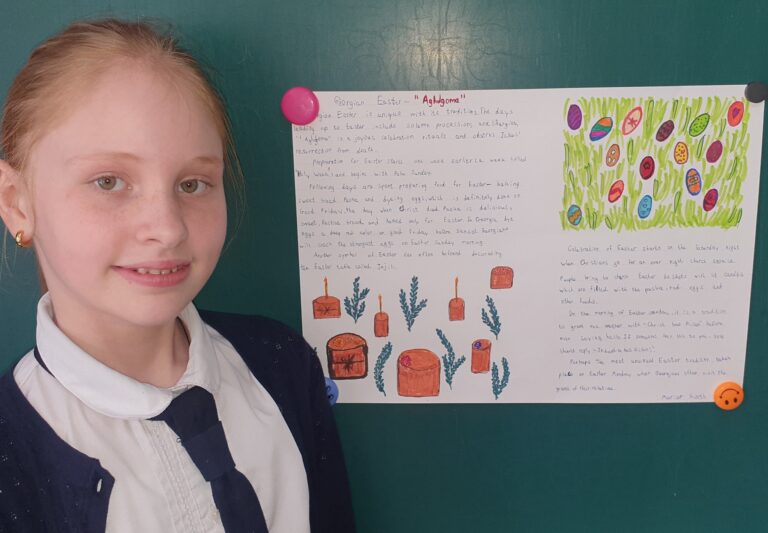 Georgian Easter - "Aghdgoma"
Easter is unique with its traditions. The days
leading up to Easter include solemn processions, and liturgies.
"Aghdgoma" is a joyous celebration rituals and observs Jesus'
resurrection from death.
Preparation for Easter starts one week earlier a week called
Holy Week and begins with Palm Sunday.
Following days are spent preparing food for Easter - baking
sweet bread Pasca and dyeing eggs, which is definitely done on
Good Friday, the day when Christ died. Pasca is delicious,
sweet, festive bread and baked only for Easter. In Georgia dye
eggs a deep red color on good friday
will crack the strongest eggs on Easter Sunday morning.
Another symbol of Easter the often behind decorating
the Easter table called Jejili.
Celebration of Easter starts on the Saturday night
when Christians go for an over night church service.
People bring to church Easter baskets with
which are filled with the paska, red eggs, and
other foods.
On the morning of Easter Sunday, it is a tradition
to greet one another with "Christ has Risen" before
ever saying hello. If someone say this to you - you
should reply -
Perhaps the most unusual Easter tradition takes
place on Easter Monday, when Georgians
graves of their relatives.
Mariam